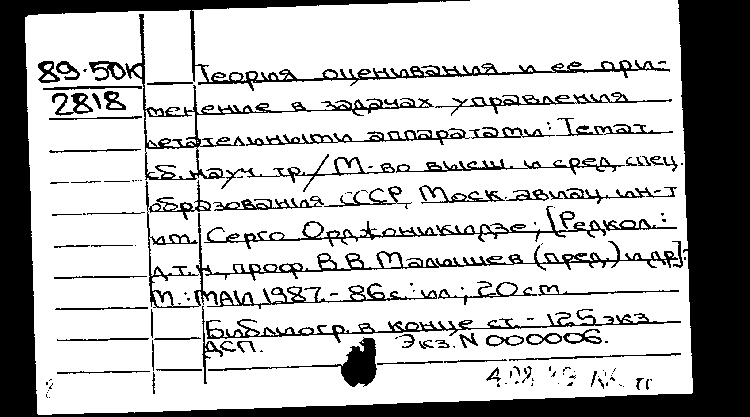 89-50К Теория оценивания и ее при-
2818 менение в задачах управления
летательными аппаратами: Темат.
сб. науч. тр./М-во высш. и сред. спец.
образования СССР, Моск. авиац. ин-т
им. Серго Орджоникидзе; [Редкол.:
д.т.н., проф. В.В. Малышев (пред.) и др.].-
М.: МАИ, 1987.- 86 с.: ил.; 20 см.
Библиогр. в конце ст.- 125 экз.
ДСП. Экз. N 000006.